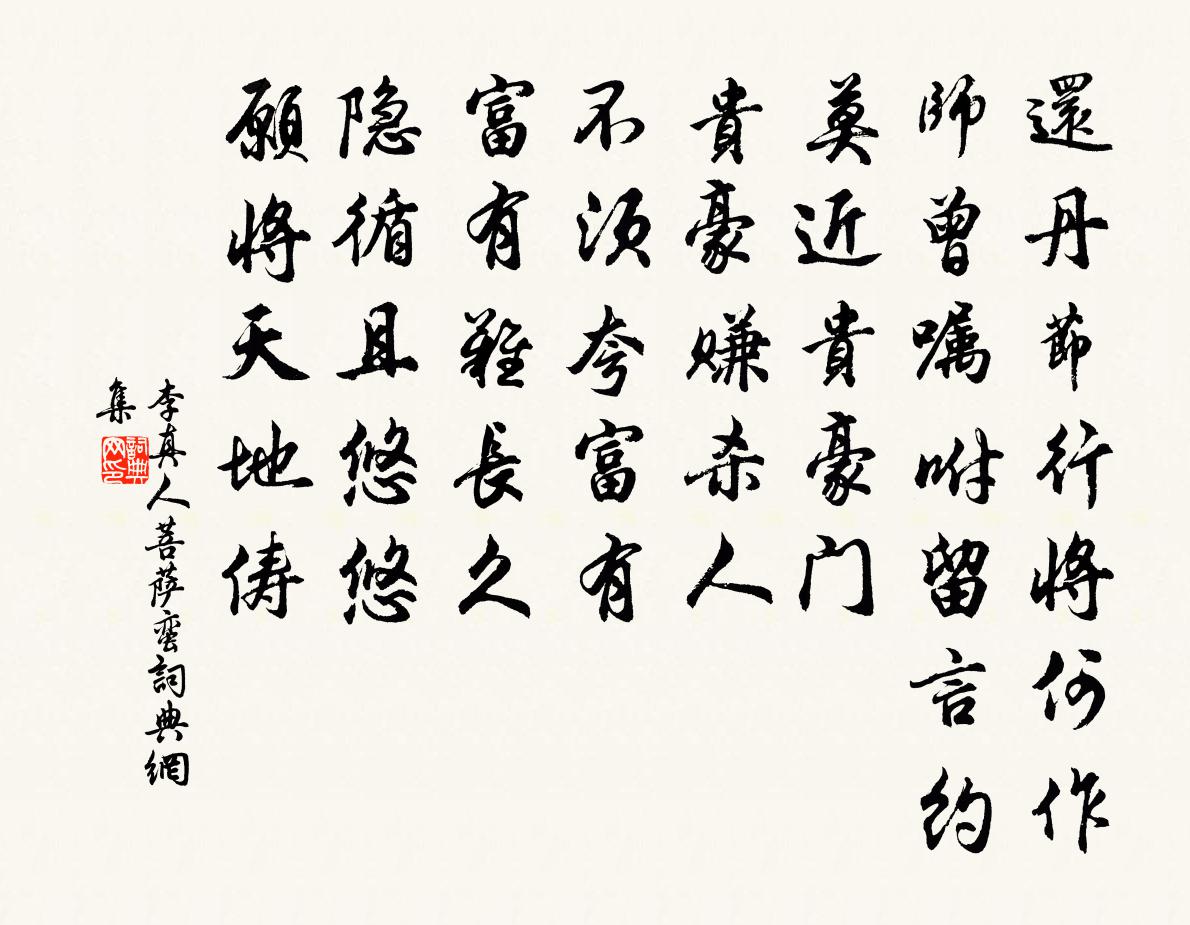 還丹節行將何作
師曾嘱咐留言約
莫近貴豪門
貴豪赚杀人
不须夸富有
富有難長久
隐循且悠悠
願將天地俦
李真人菩萨蛮詞典網
集
詞典
网印